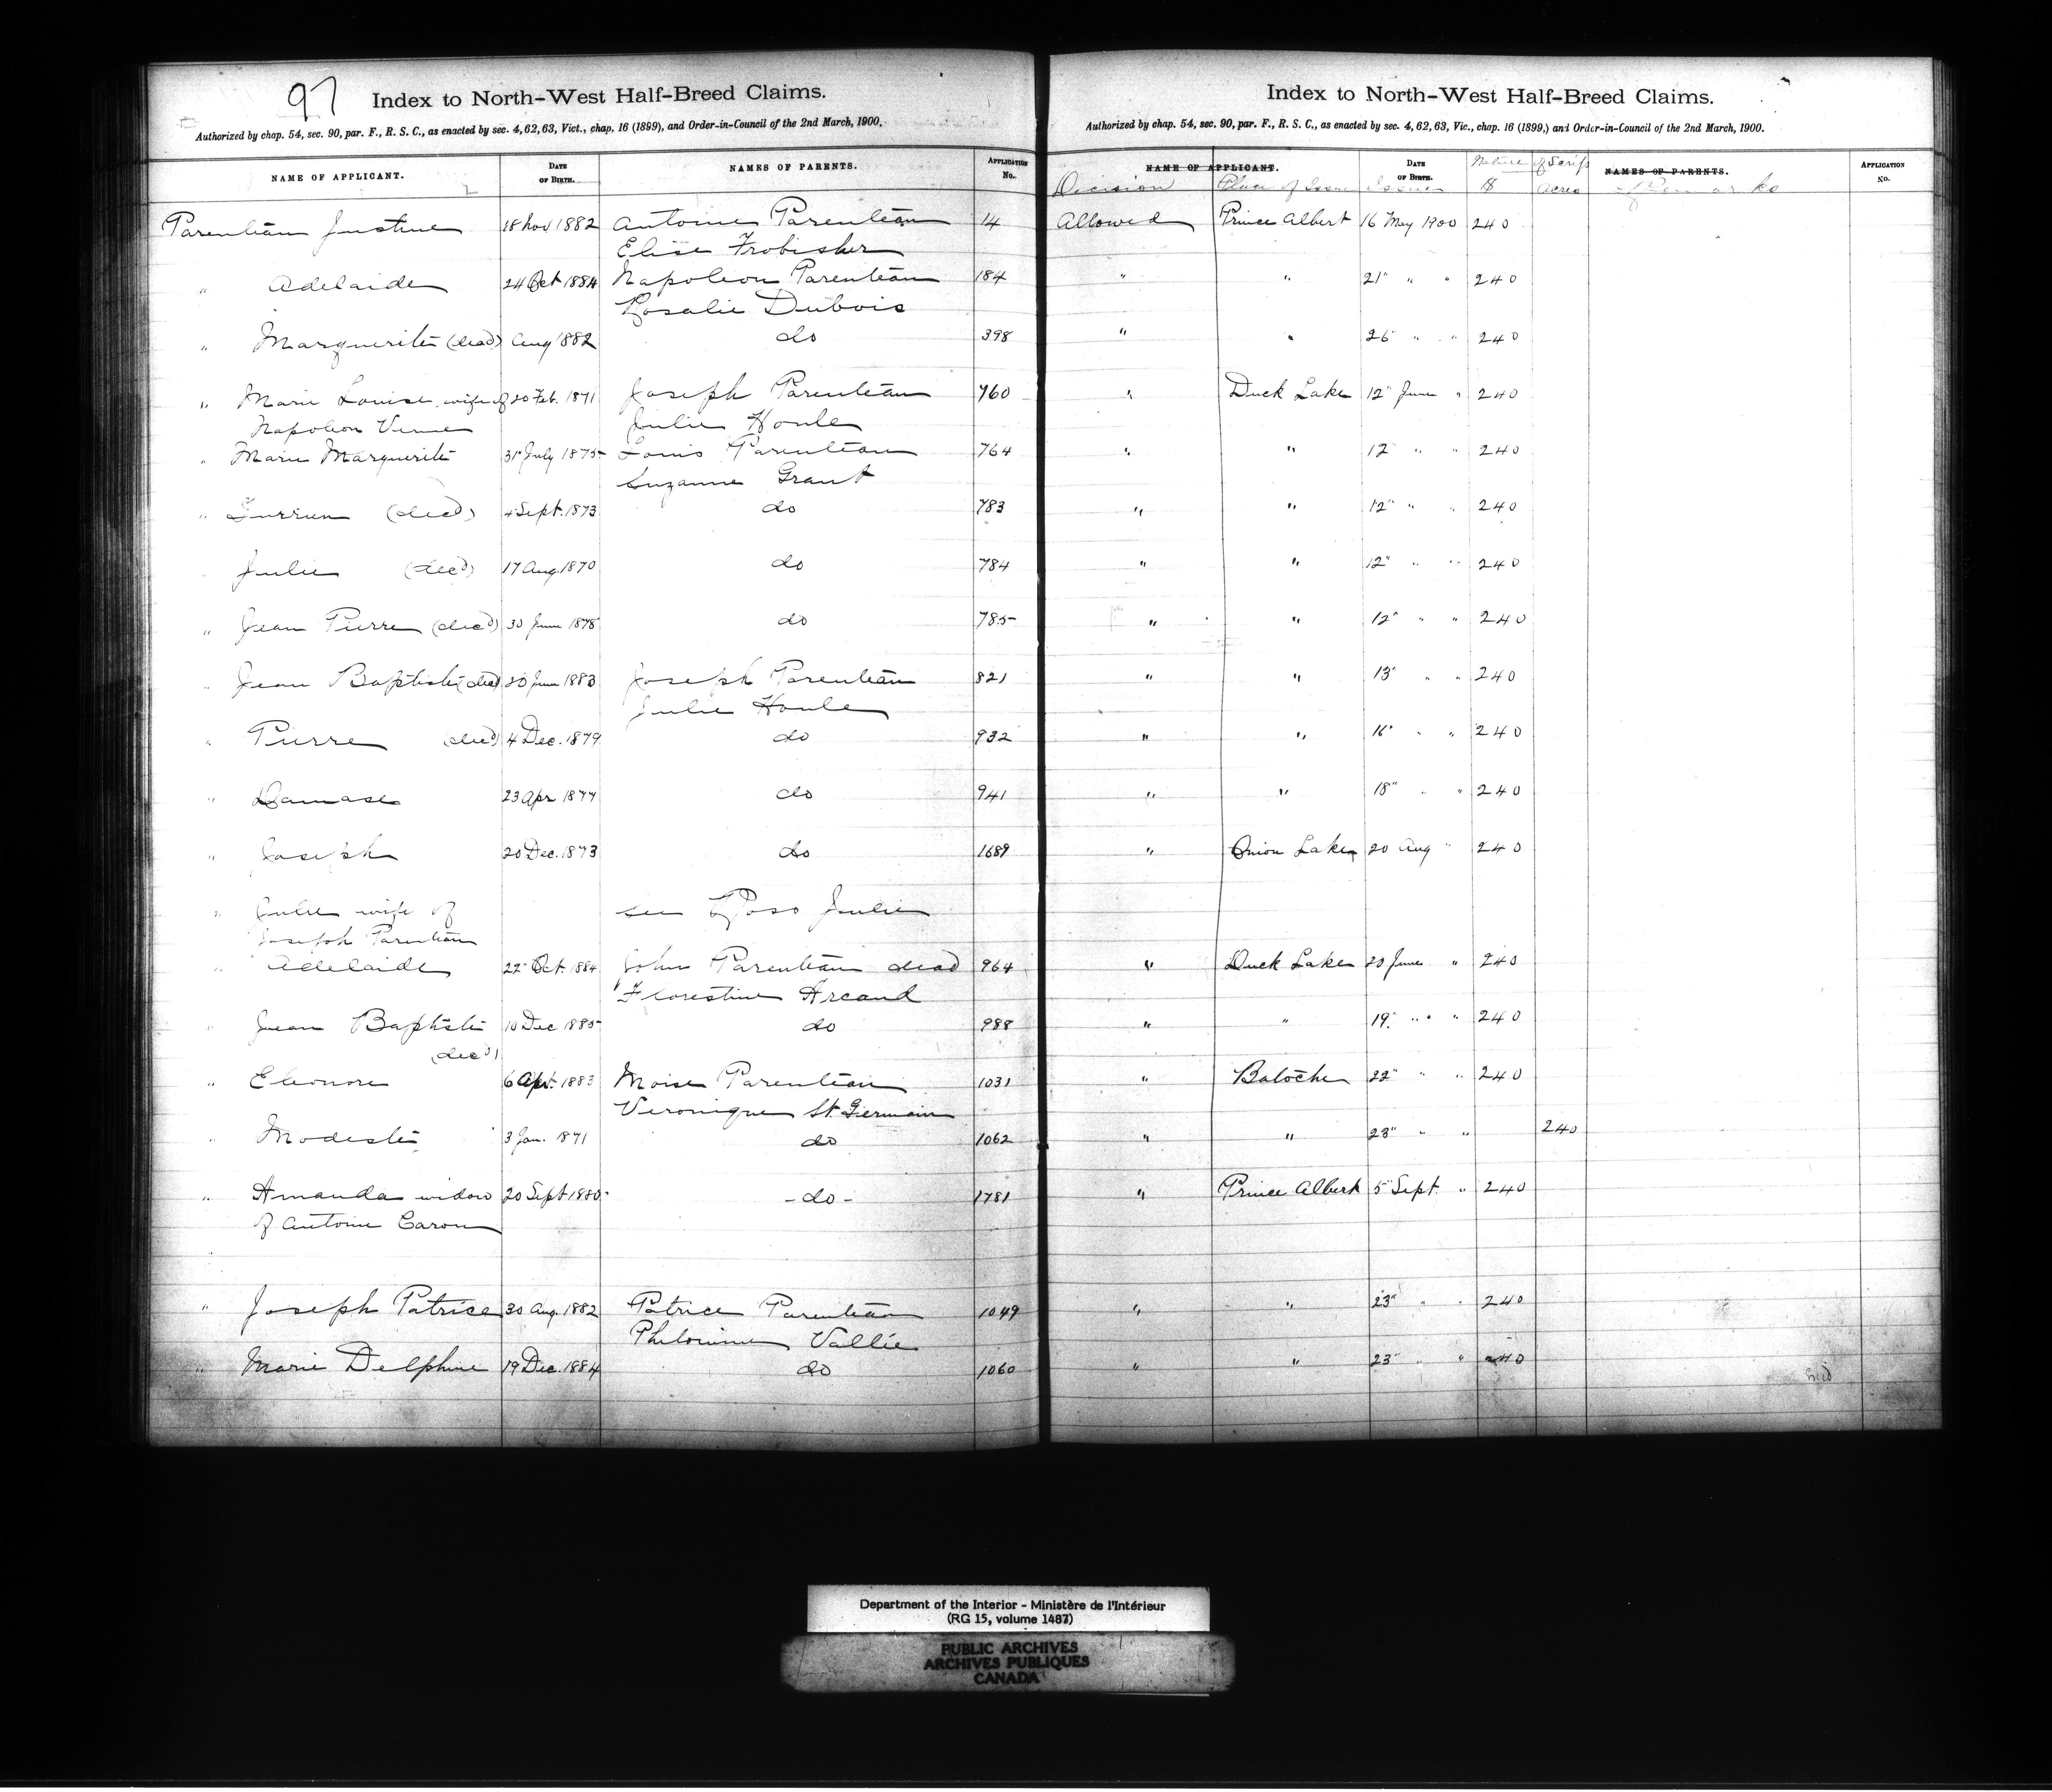 97
Index to North-West Half-Breed Claims.
Authorized by chap. 54, sec. 90, par. F., R. S. C., as enacted by sec. 4, 62, 63, Vict., chap. 16 (1899), and Order-in-Council of the 2nd March, 1900.
NAME OF APPLICANT. DATE OF BIRTH. NAMES OF PARENTS. APPLICATION No.
2
Parenteau Justine 18 Nov 1882 Antoine Parenteau 14
Elise Frobisher
" Adelaide 24 Oct 1884 Napoleon Parenteau 184
Rosalie Dubois
" Marguerite (dead) Aug 1882 do 398
" Marie Louise wife of 20 Feb. 1871 Joseph Parenteau 760
Napoleon Venne Julie Houle
" Marie Marguerite 31 July 1875 Louis Parenteau 764
Suzanne Grant
" (decd) 4 Sept. 1873 do 783
Julie (decd) 17 Aug. 1870 do 784
" Jean Pierre (decd) 30 June 1878 do 785
" Jean Baptiste (decd) 30 June 1883 Joseph Parenteau 821
Julie Houle
" Pierre (decd) 4 Dec. 1879 do 932
" Damase 23 Apr 1877 do 941
" Joseph 20 Dec. 1873 do 1689
" Julie wife of see Julie
Joseph Parenteau
" Adelaide 22 Oct. 1884 John Parenteau dead 964
Florestine Arcand
" Jean Baptiste 10 Dec 1885 do 988
(decd)
" Eleonore 6 Apr. 1883 Moise Parenteau 1031
Veronique St. Germain
" Modeste 3 Jan. 1871 do 1062
" Amanda widow 20 Sept 1880 - do - 1781
of Antoine Caron
" Joseph Patrice 30 Aug. 1882 Patrice Parenteau 1049
Philomene Vallie
" Marie Delphine 19 Dec. 1884 do 1060
Index to North-West Half-Breed Claims.
Authorized by chap. 54, sec. 90, par. F., R. S. C., as enacted by sec. 4, 62, 63, Vic., chap. 16 (1899,) and Order-in-Council of the 2nd March, 1900.
NAME OF APPLICANT. DATE OF BIRTH. Nature of Scrip NAMES OF PARENTS. APPLICATION No.
Decision Place of Issue Issue $ Acres Remarks
Allowed Prince Albert 16 May 1900 240
" " 21" " " 240
" " 26" " " 240
" Duck Lake 12" June " 240
" " 12 " " 240
" " 12" " " 240
" " 12" " " 240
" " 12" " " 240
" " 13" " " 240
" " 16" " " 240
" " 18" " " 240
" Onion Lake 20 Aug " 240
" Duck Lake 20 June " 240
" " 19" " " 240
" Batoche 22" " " 240
" " 23" " " 240
" Prince Albert 5" Sept. " 240
" " 23" " " 240
" " 23" " " 240
Department of the Interior - Ministère de l'Intérieur
(RG 15, volume 1487)
PUBLIC ARCHIVES
ARCHIVES PUBLIQUES
CANADA